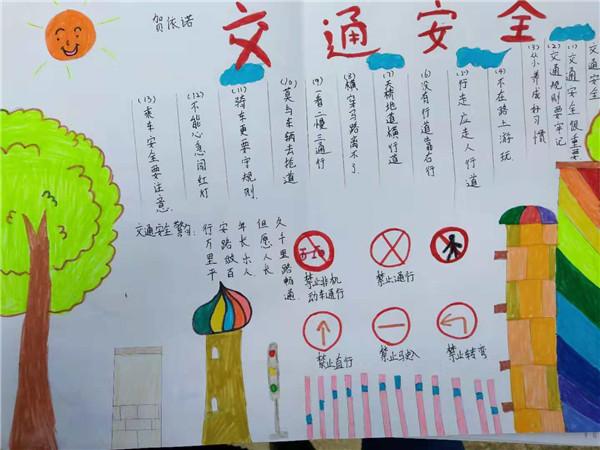 贺依诺
交通安全
交通安全
(1)交通安全很重要
(2)交通规则要牢记
(3)从小养成好习惯
(4)不在路上游玩
(5)行走应走人行道
(6)没有行道靠右行
(7)天桥地道横行道
(8)横穿马路离不了
(9)一看二慢三通行
(10)莫与车辆去抢道
(11)骑车更要守规则
(12)不能心急闯红灯
(13)乘车安全要注意
交通安全警句:
行万里平
安路做百
年长乐人
但愿人长
久千里路畅通
禁止非机
动车通行
禁止通行
禁止直行
禁止马入
禁止转弯